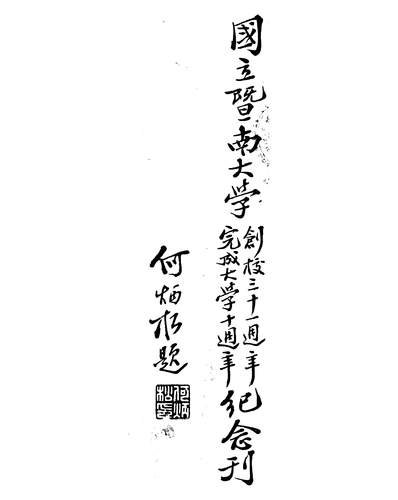 國立暨南大学
創校三十一週年
完成大学十週年
紀念刊
何炳松題
何炳松印